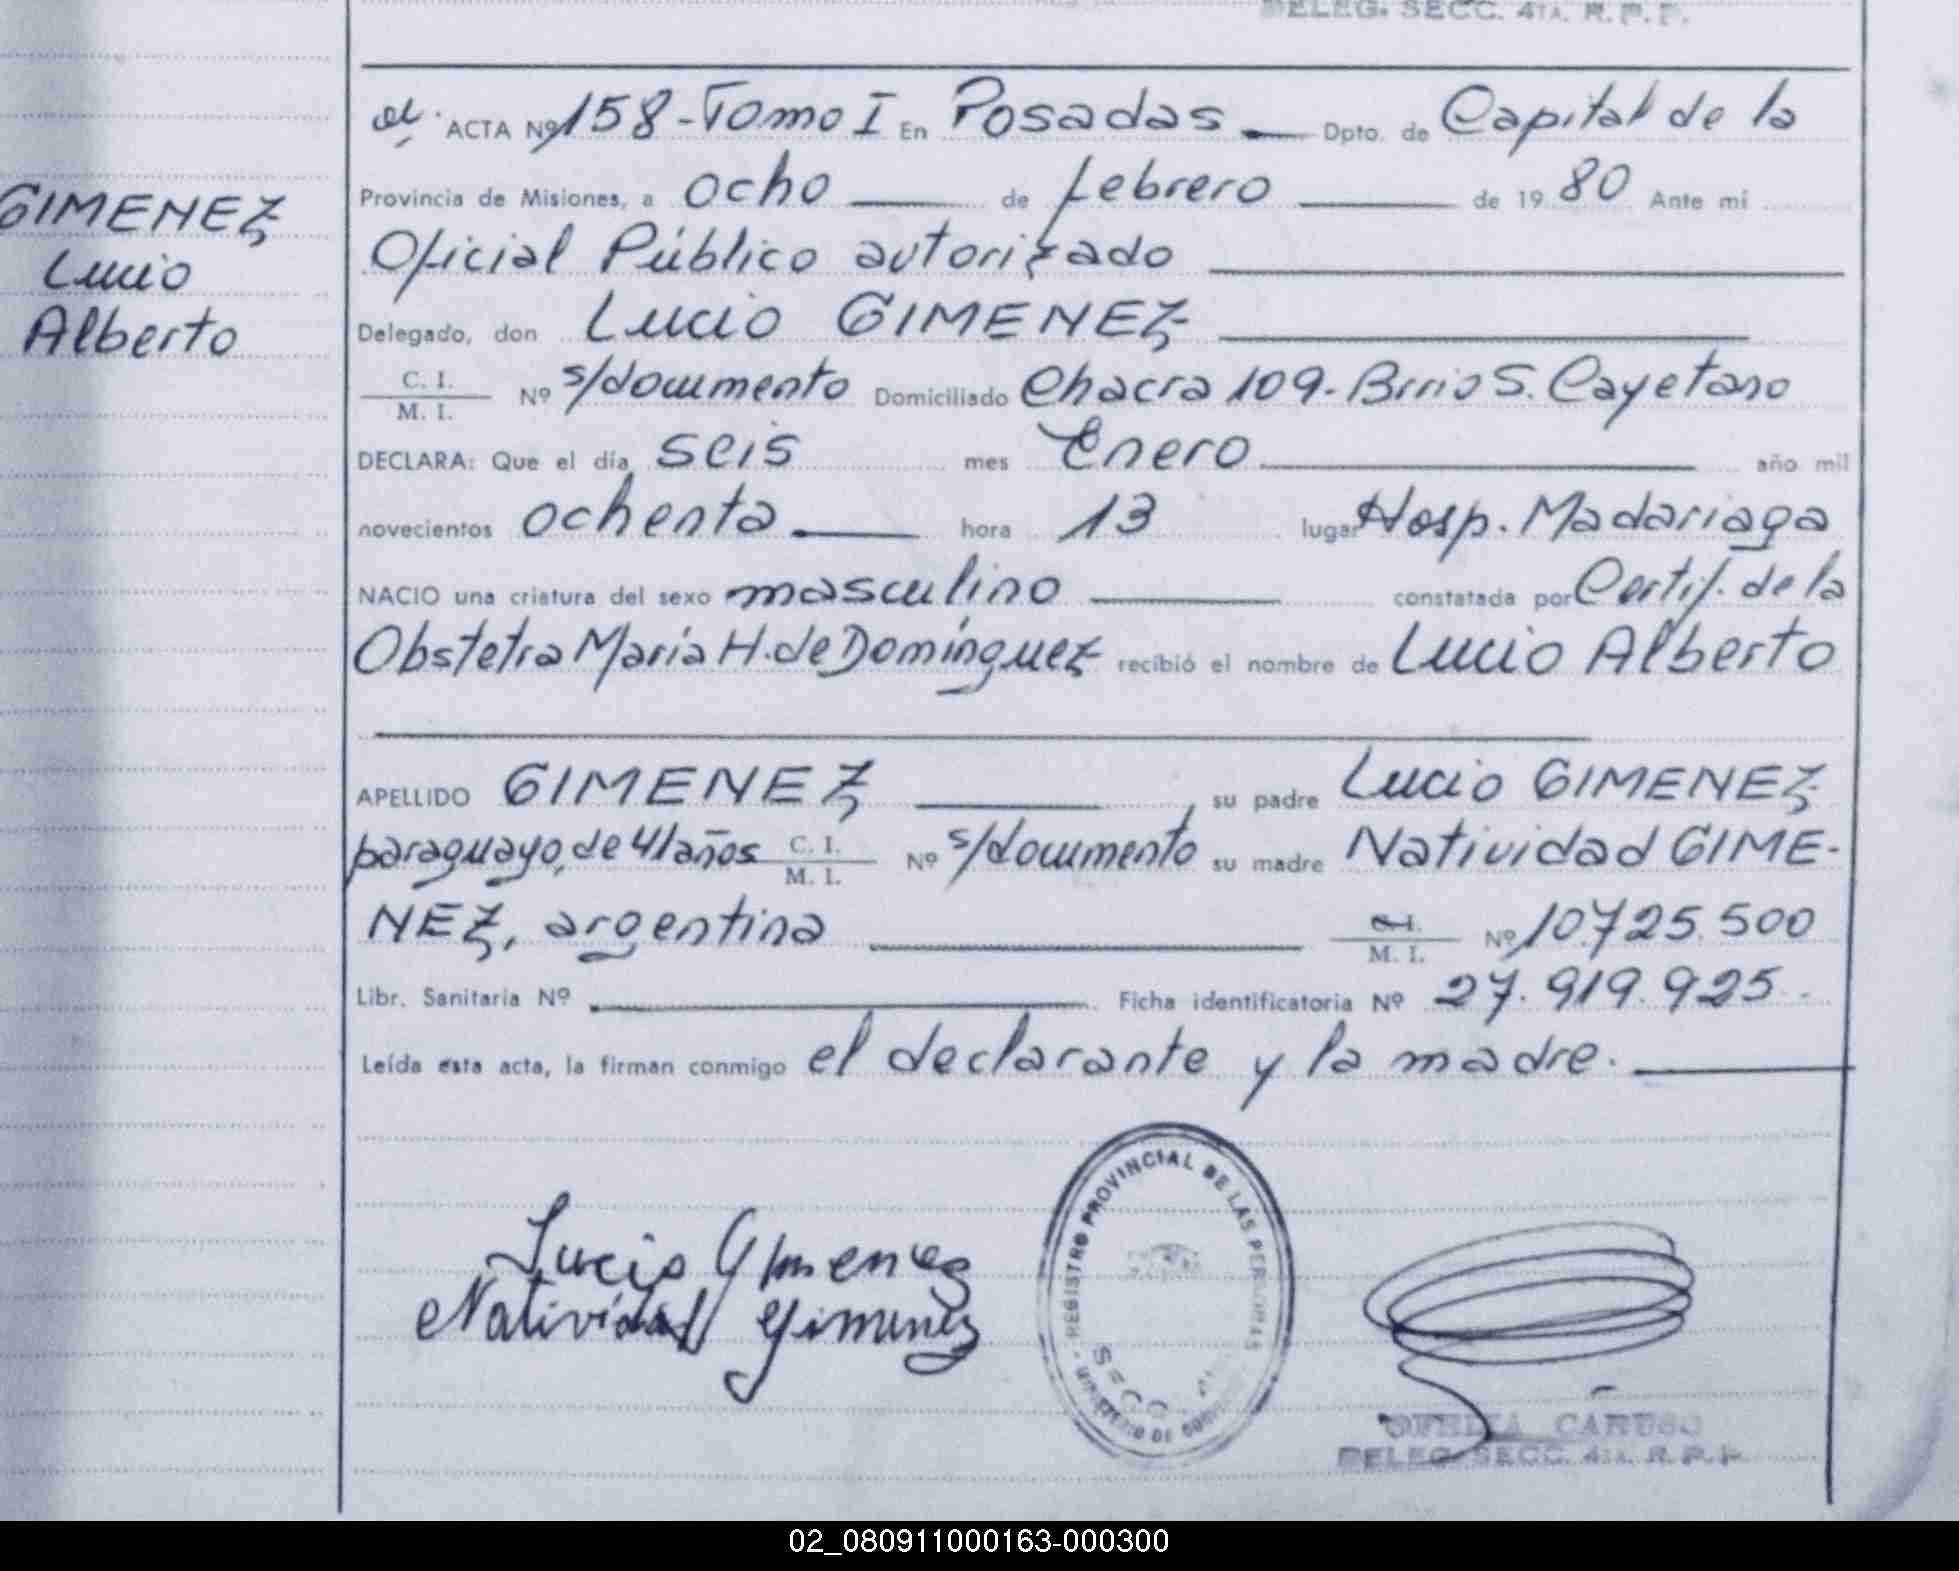 DELEG. SECC. 4TA. R. P. P.
ACTA Nº 158-Tomo I En Posadas Dpto. de Capital de la
Provincia de Misiones, a ocho de febrero de 19 80 Ante mi
GIMENEZ
Oficial Público autorizado
Lucio
Alberto
Delegado, don Lucio GIMENEZ
C. I.
M. I. Nº s/documento Domiciliado Chacra 109-Brrio S. Cayetano
DECLARA: Que el día seis mes Enero año mil
novecientos ochenta hora 13 lugar Hosp. Madariaga
NACIO una criatura del sexo masculino constatada por Certif. de la
Obstetra María H. de Domínguez recibió el nombre de Lucio Alberto
APELLIDO GIMENEZ, su padre Lucio GIMENEZ
paraguayo, de 41 años C. I. M. I. Nº s/documento su madre Natividad GIME-
NEZ, argentina M. I. Nº 10.725.500
Libr. Sanitaria Nº Ficha identificatoria Nº 27.919.925.
Leída esta acta, la firman conmigo el declarante y la madre.
Lucio Gimenez
Natividad Gimenez
REGISTRO PROVINCIAL DE LAS PERSONAS
SECC.
OFELIA CARUSO
DELEG. SECC. 4TA. R. P. P.
02_080911000163-000300